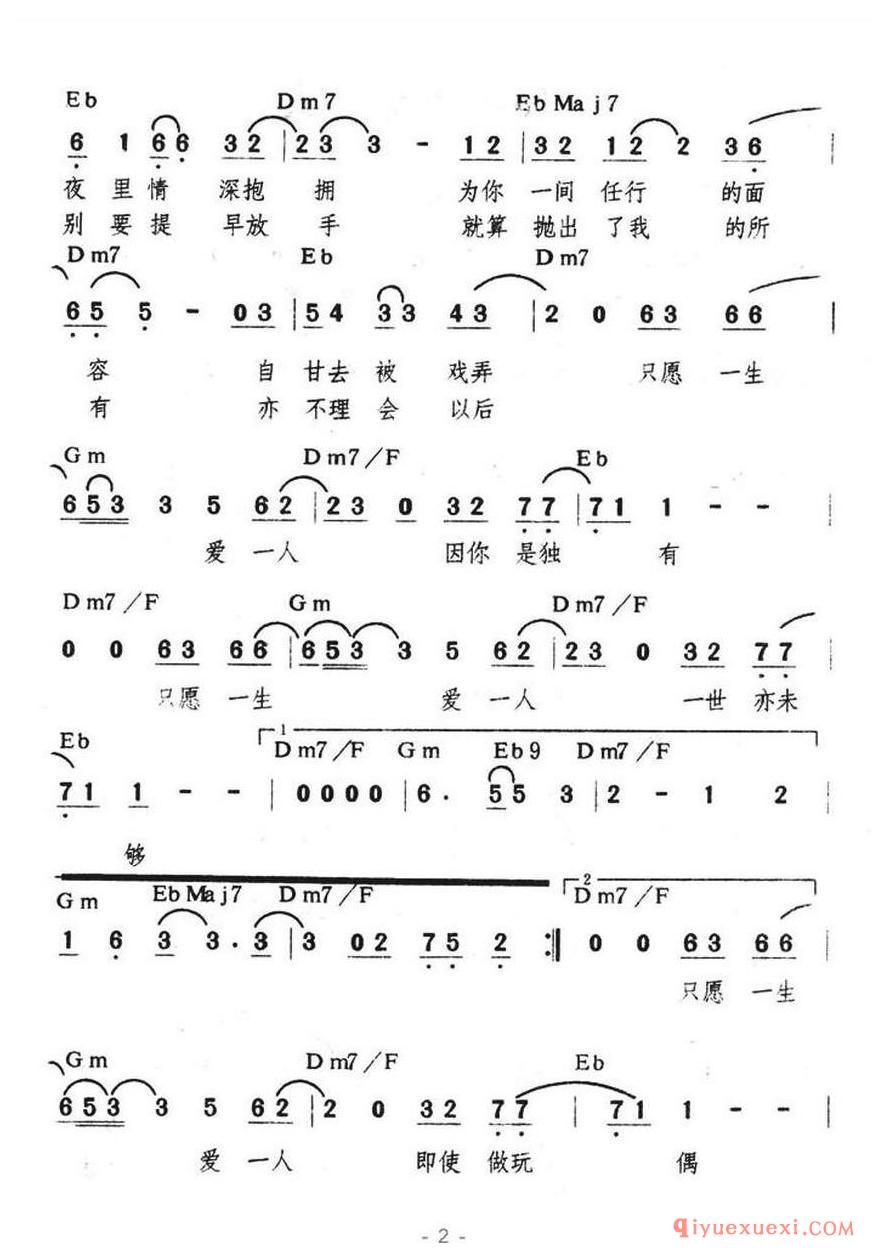 Eb Dm7 EbMaj7
6 1 6 6 3 2 | 2 3 3 - 1 2 | 3 2 1 2 2 3 6 |
夜里情 深抱 拥 为你 一间 任行 的面
别要提 早放 手 就算 抛出 了我 的所
Dm7 Eb Dm7
6 5 5 - 0 3 | 5 4 3 3 4 3 | 2 0 6 3 6 6 |
容 自 甘去 被 戏弄 只愿 一生
有 亦 不理 会 以后
Gm Dm7/F Eb
6 5 3 3 5 6 2 | 2 3 0 3 2 7 7 | 7 1 1 - - |
爱 一人 因你 是独 有
Dm7/F Gm Dm7/F
0 0 6 3 6 6 | 6 5 3 3 5 6 2 | 2 3 0 3 2 7 7 |
只愿 一生 爱 一人 一世 亦未
Eb 1 Dm7/F Gm Eb9 Dm7/F
7 1 1 - - | 0 0 0 0 | 6 . 5 5 3 | 2 - 1 2 |
够
Gm EbMaj7 Dm7/F 2 Dm7/F
1 6 3 3 . 3 | 3 0 2 7 5 2 :‖ 0 0 6 3 6 6 |
只愿 一生
Gm Dm7/F Eb
6 5 3 3 5 6 2 | 2 0 3 2 7 7 | 7 1 1 - - |
爱 一人 即使 做玩 偶
- 2 -
qiyuexuexi.com